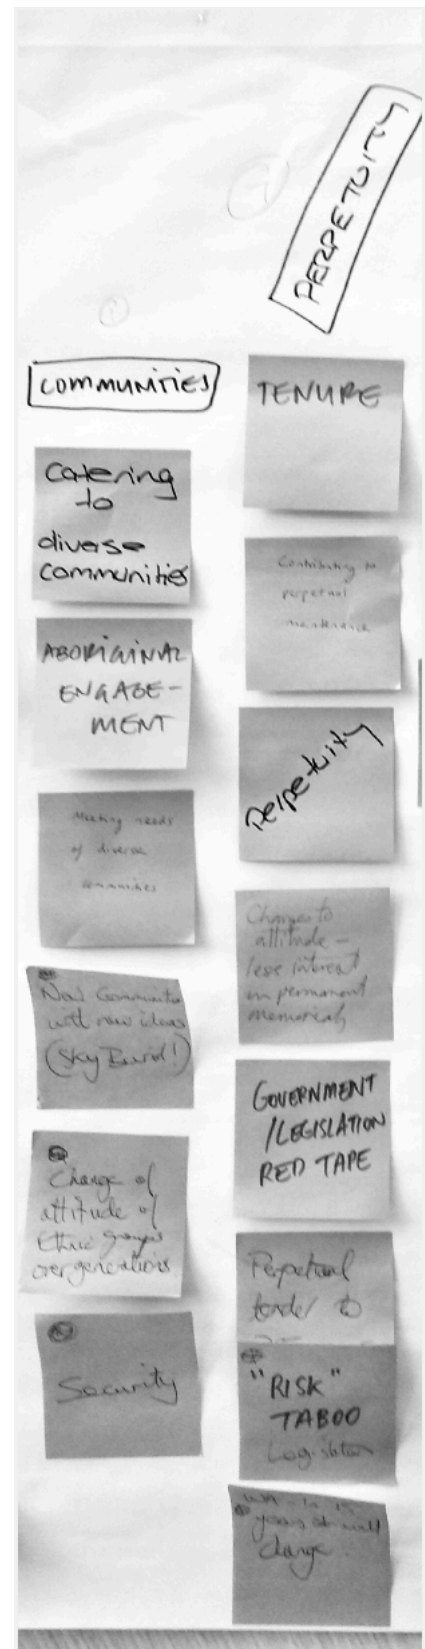 COMMUNITIES
Catering
to
diverse
communities
ABORIGINAL
ENGAGE-
MENT
Meeting needs
of diverse
communities
New Communities
with new ideas
(Sky Burial!)
Change of
attitude of
Ethnic groups
over generations
Security
PERPETUITY
TENURE
Contributing to
perpetual
maintenance
Perpetuity
Changes to
attitude –
less interest
in permanent
memorials
GOVERNMENT
/LEGISLATION
RED TAPE
Perpetual
tender to
"RISK"
TABOO
Legislation
years
change